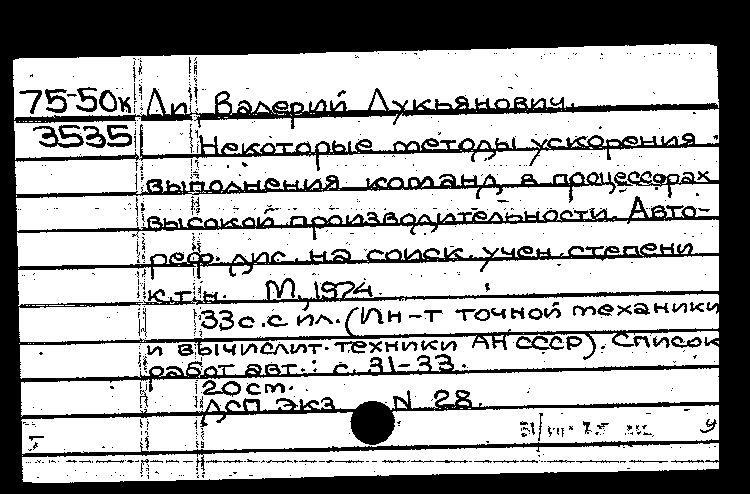 75-50к Ли Валерий Лукьянович.
3535 Некоторые методы ускорения
выполнения команд в процессорах
высокой производительности. Авто-
реф. дис. на соиск. учен. степени
к.т.н. М., 1974.
33 с. с ил. (Ин-т точной механики
и вычислит. техники АН СССР). Список
работ авт.: с. 31-33.
20 см.
ДСП. Экз. N 28.